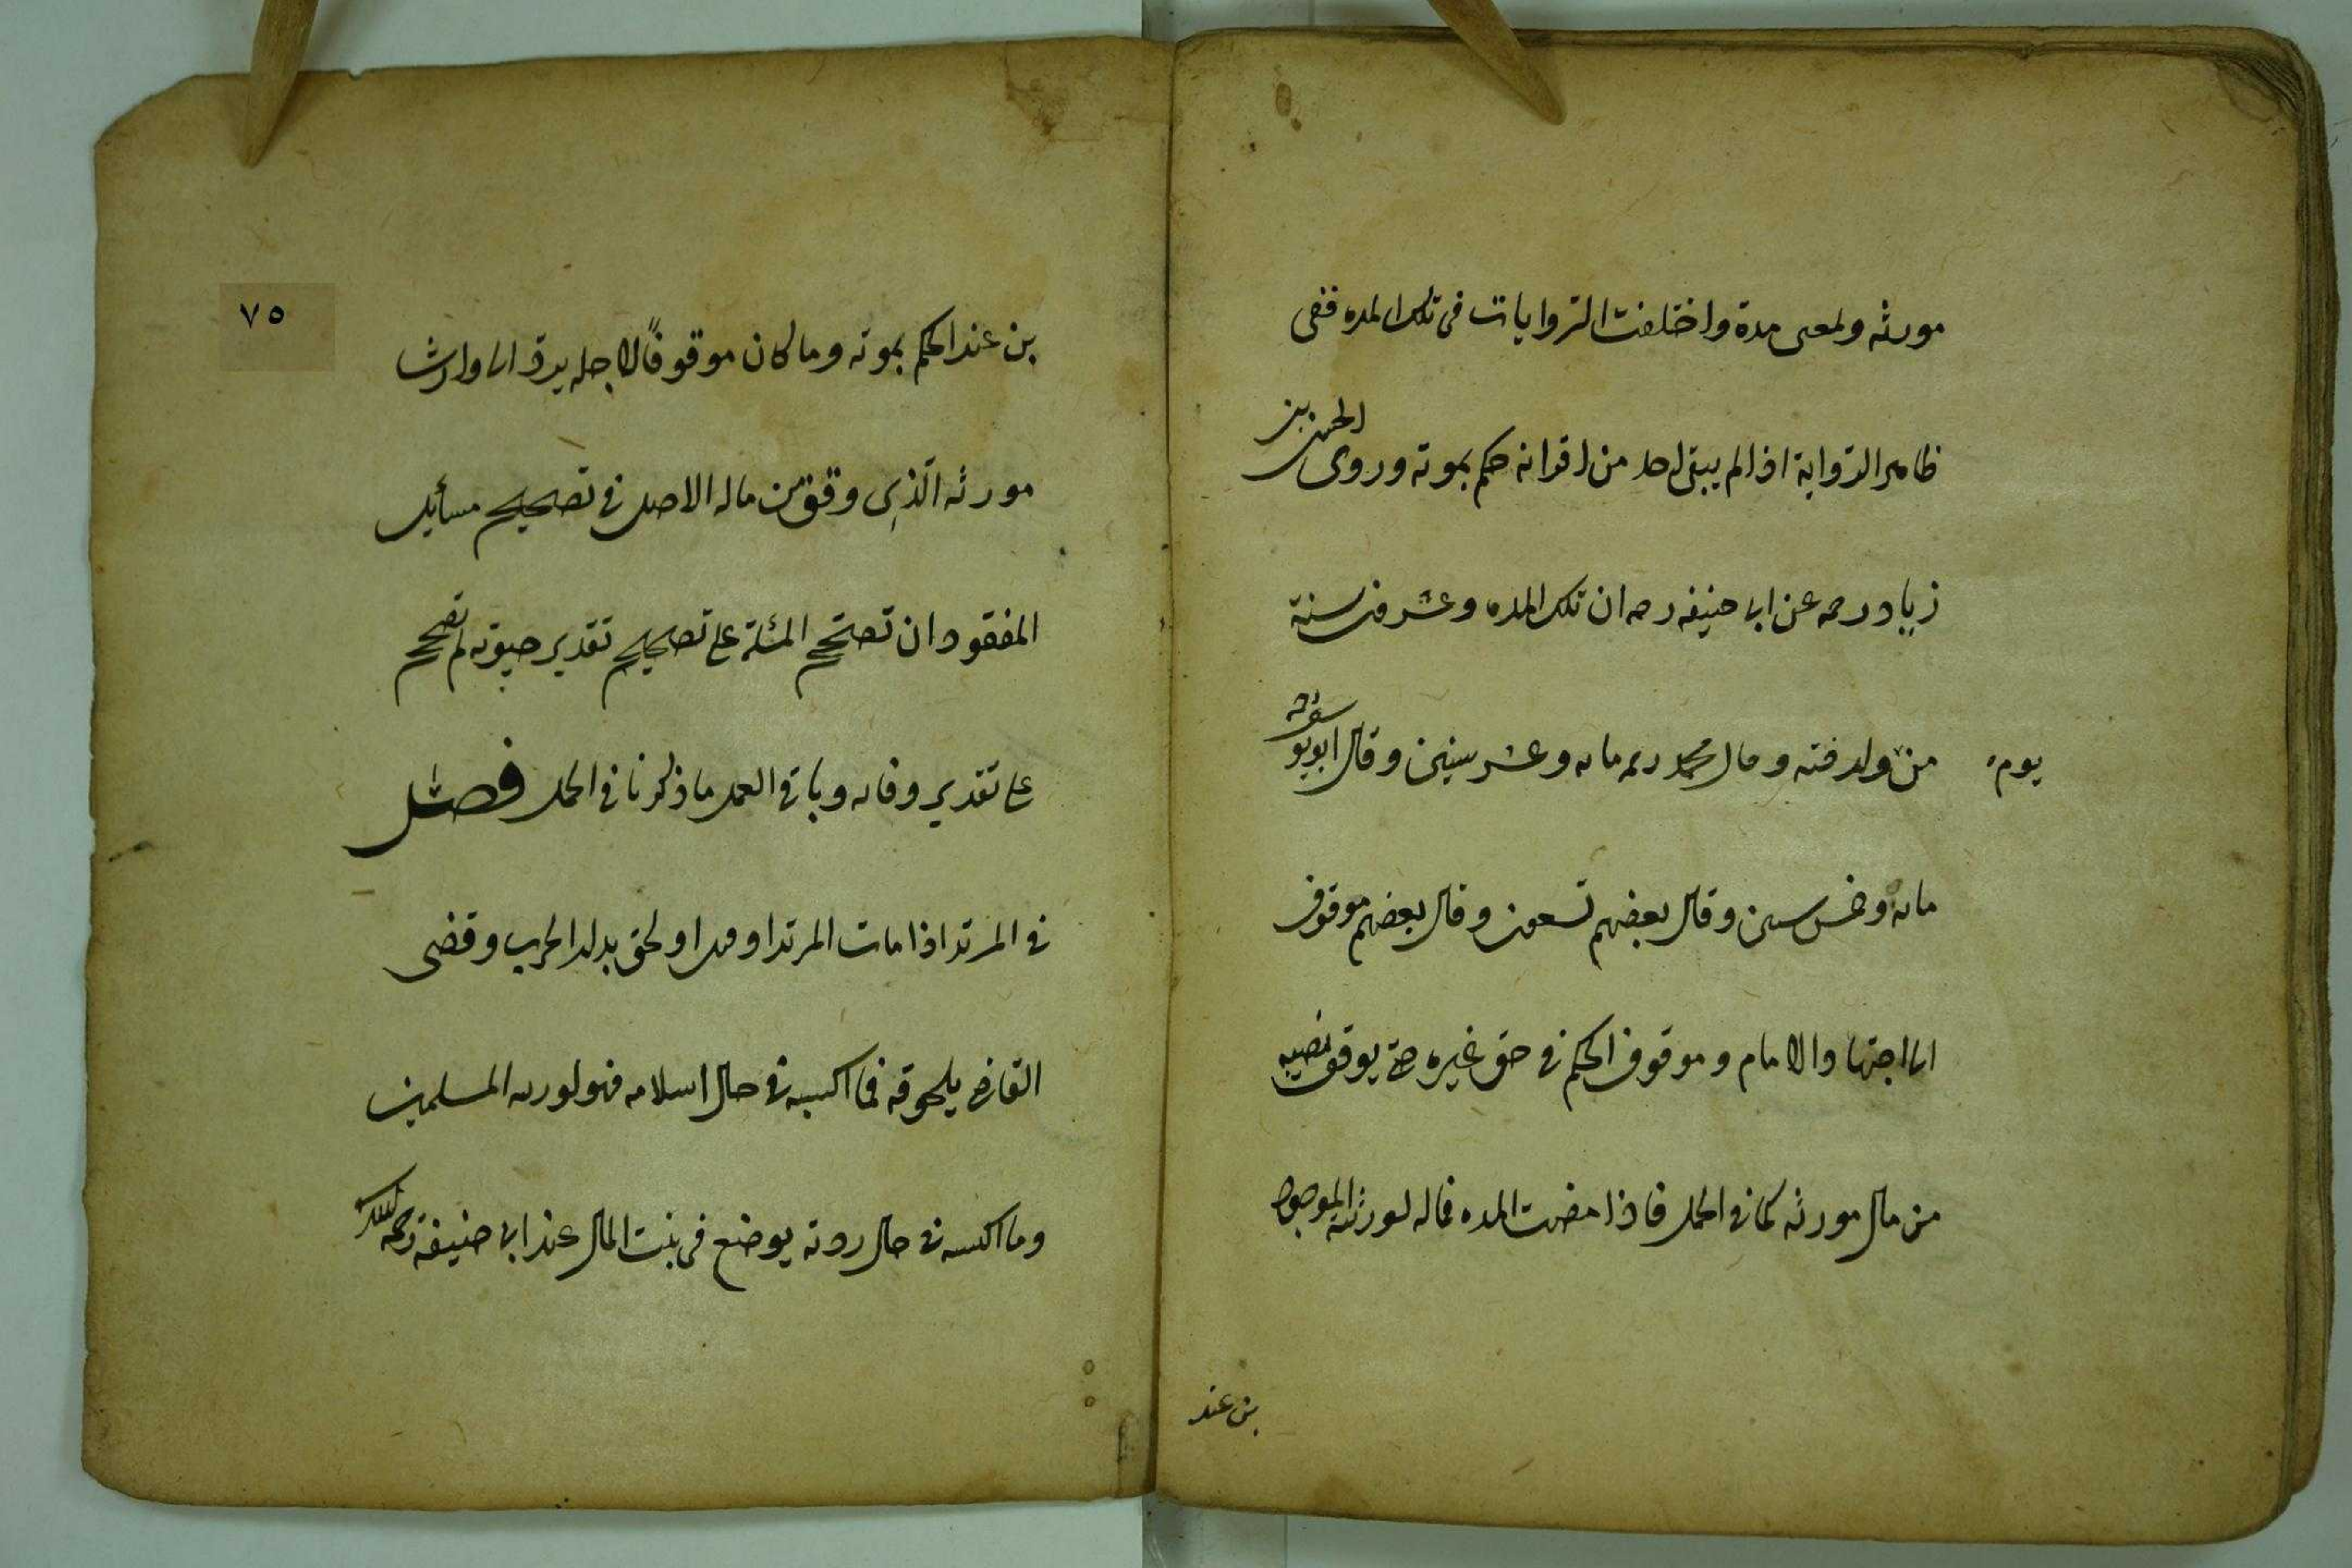 مورثه ولمعى مدة واختلفت الروايات فى تلك المده ففى
ظاهر الرواية اذا لم يبقى احد من اقرانه حكم بموته وروى الحسن بن
زياد رحمه عن ابى حنيفه رحمه ان تلك المده وعشرون سنة
من ولد فته وقال محمد رحمه مايه وعشر سنين وقال ابو يوسف
يوم
مايه وخمس سنين وقال بعضهم تسعون وقال بعضهم موقوف
الى اجتهاد الامام وموقوف الحكم فى حق غيره حتى يوقف نصيبه
من مال مورثه كما فى الحمل فاذا مضت المده فماله لورثته الموجود
ين عند
٧٥
ين عند الحكم بموته وما كان موقوفًا لاجله يردّ الى وارث
مورثه الّذى وقف من ماله الاصل فى تصحيح مسأيل
المفقود ان تصحّح المسئلة على تصحيح تقدير حيوته ثم تصحح
على تقدير وفاته وباقى العمل ما ذكرنا فى الحمل فصل
فى المرتد اذا مات المرتد او قتل او لحق بدار الحرب وقضى
القاضى بلحوقه فما اكتسبه فى حال اسلامه فهو لورثته المسلمين
وما اكتسبه فى حال ردته يوضع فى بيت المال عند ابى حنيفة رحمه الله